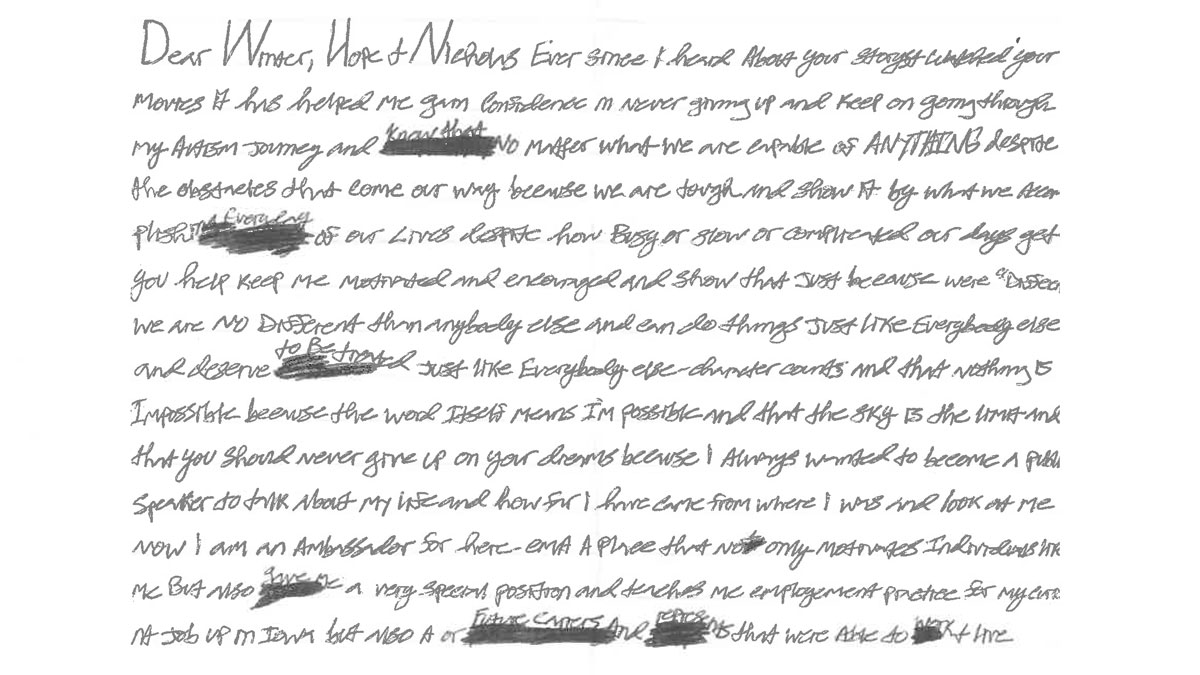 Dear Winter, Hope & Nicholas Ever since I heard About your story & watched your
movies It has helped me gain confidence in never giving up and keep on going through
my Autism Journey and know that NO matter what we are capable of ANYTHING despite
the obstacles that come our way because we are tough and show it by what we accom
plishing Everyday of our Lives despite how Busy or slow or complicated our days get
you help keep me motivated and encouraged and show that Just because were "Differ
we are NO Different than anybody else and can do things Just like Everybody else
and deserve to Be treated Just like Everybody else-character counts and that nothing is
Impossible because the word Itself means I'm possible and that the sky is the limit and
that you should never give up on your dreams because I Always wanted to become a publi
speaker to talk About my life and how far I have came from where I was and look at me
now I am an Ambassador for here- A Place that not only motivates Individuals lik
me But also gave me a very special position and teaches me employement practice for my curre
nt Job up in Iowa but also A or Future carrers And represents that were Able to work & live